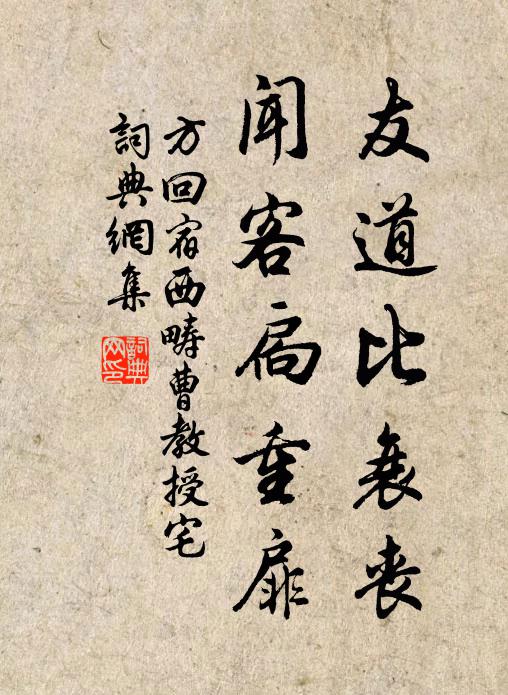 友道比衰喪
聞客扃重扉
方回宿西疇曹教授宅
詞典網集
詞典網印